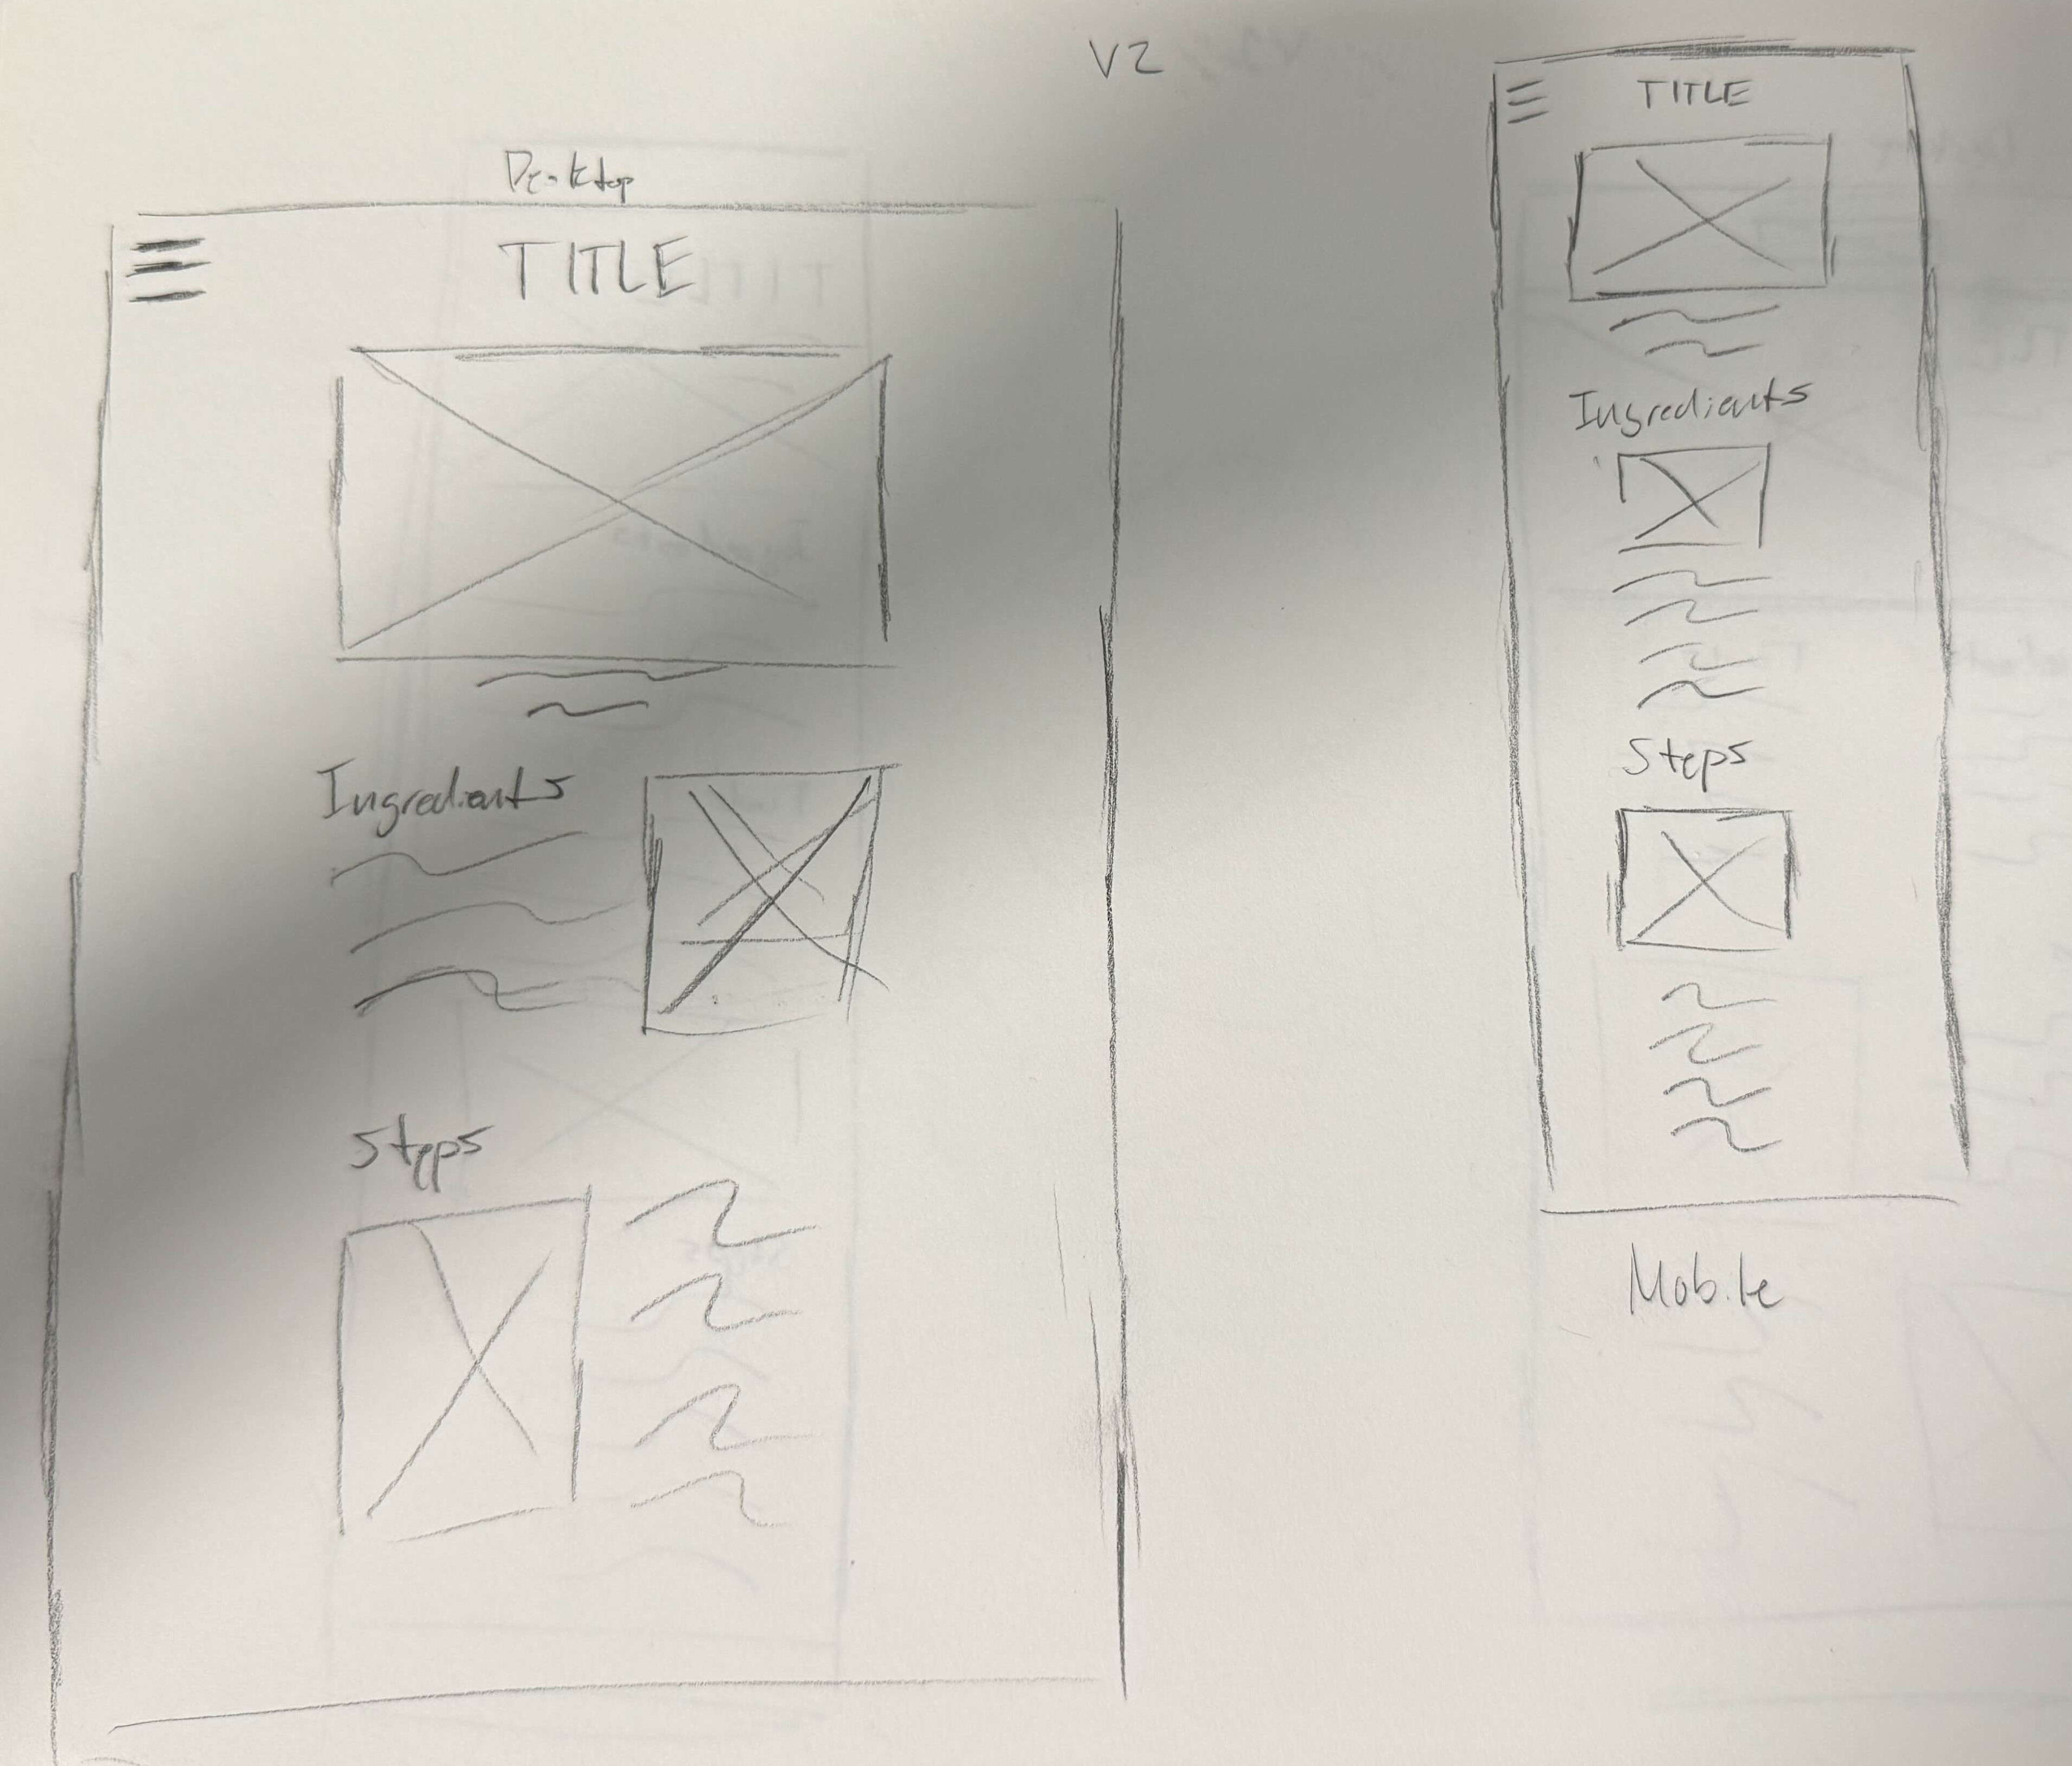 V2
Desktop
TITLE
Ingredients
Steps
TITLE
Ingredients
Steps
Mobile